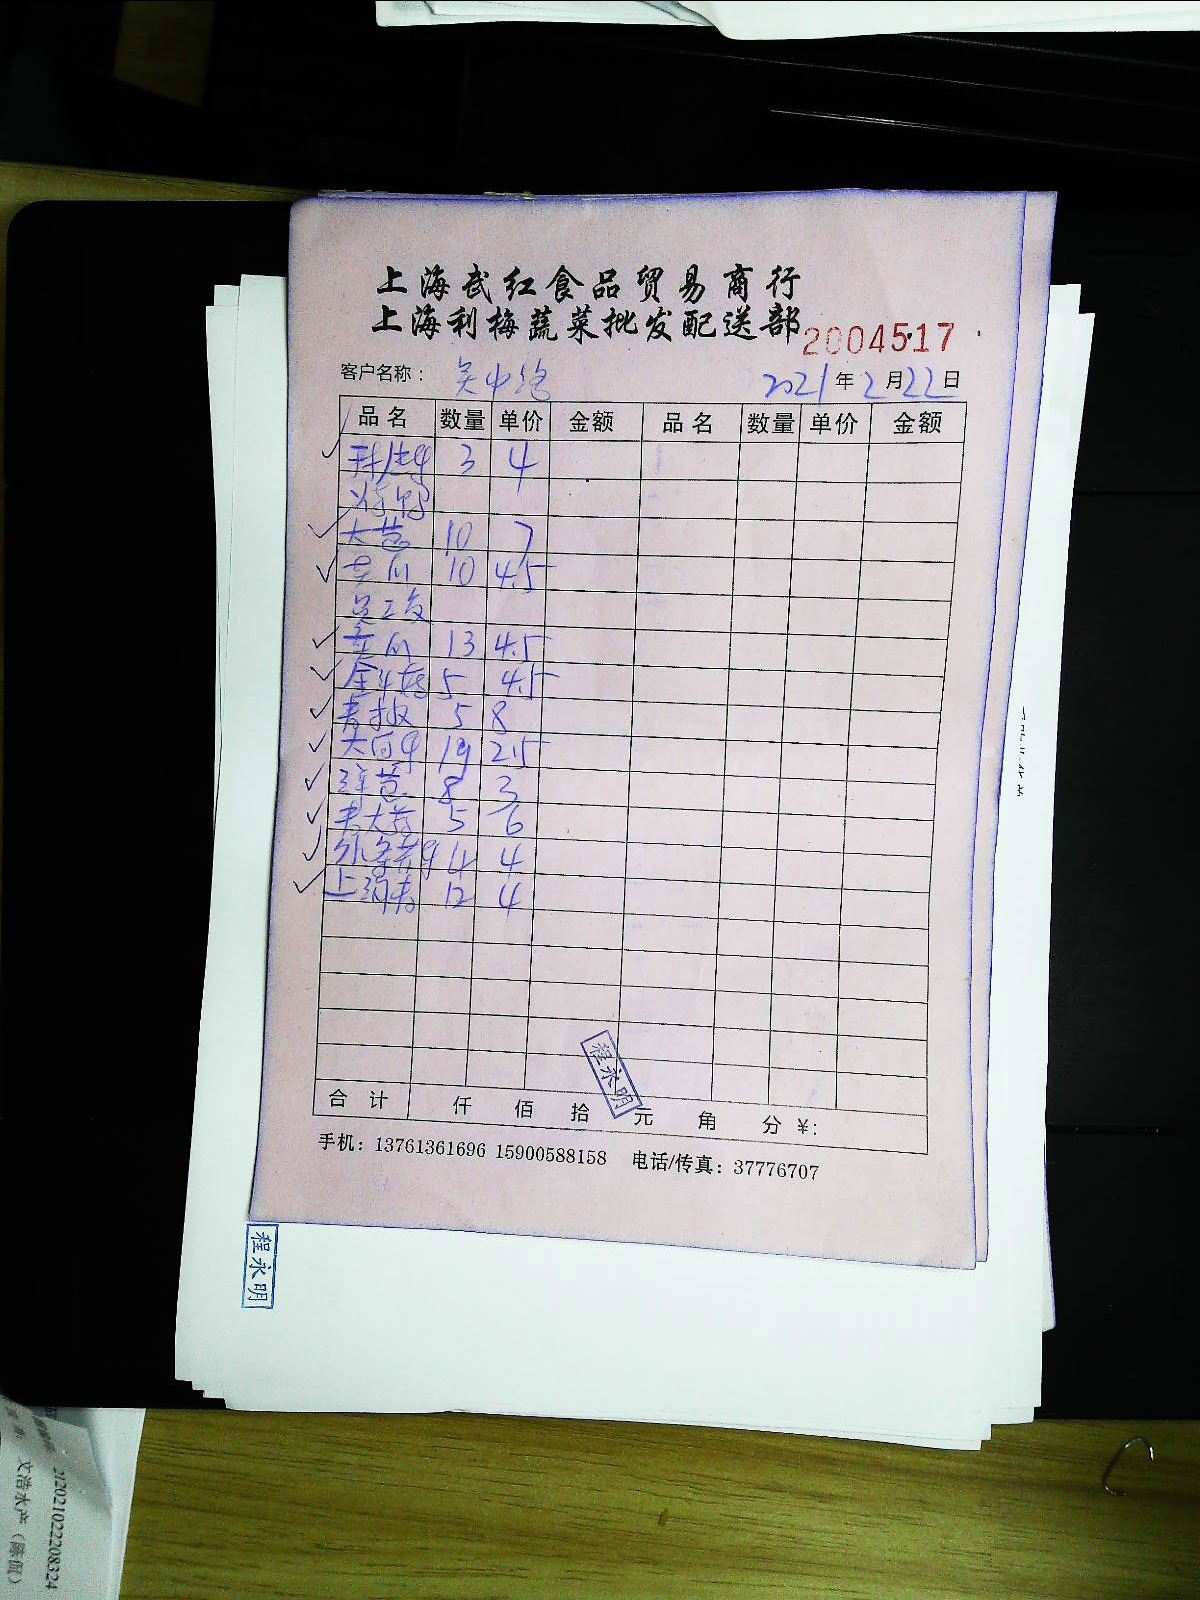 上海武红食品贸易商行
上海利梅蔬菜批发配送部
2004517
客户名称： 吴中路 2021年2月22日
品名 数量 单价 金额 品名 数量 单价 金额
3 4
大葱 10 7
黄瓜 10 4.5
员工餐
黄瓜 13 4.5
金针菇 5 4.5
青椒 5 8
大白菜 19 2.5
洋葱 8 3
青大蒜 5 6
4 4
上海青 12 4
合计 仟 佰 拾 元 角 分 ¥:
程永明
手机：13761361696 15900588158 电话/传真：37776707
程永明
2120210222208324
文浩水产（陈侃）